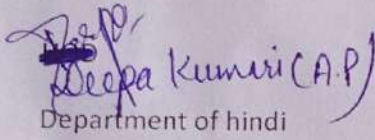 Deepa Kumari (A.P)
Department of hindi